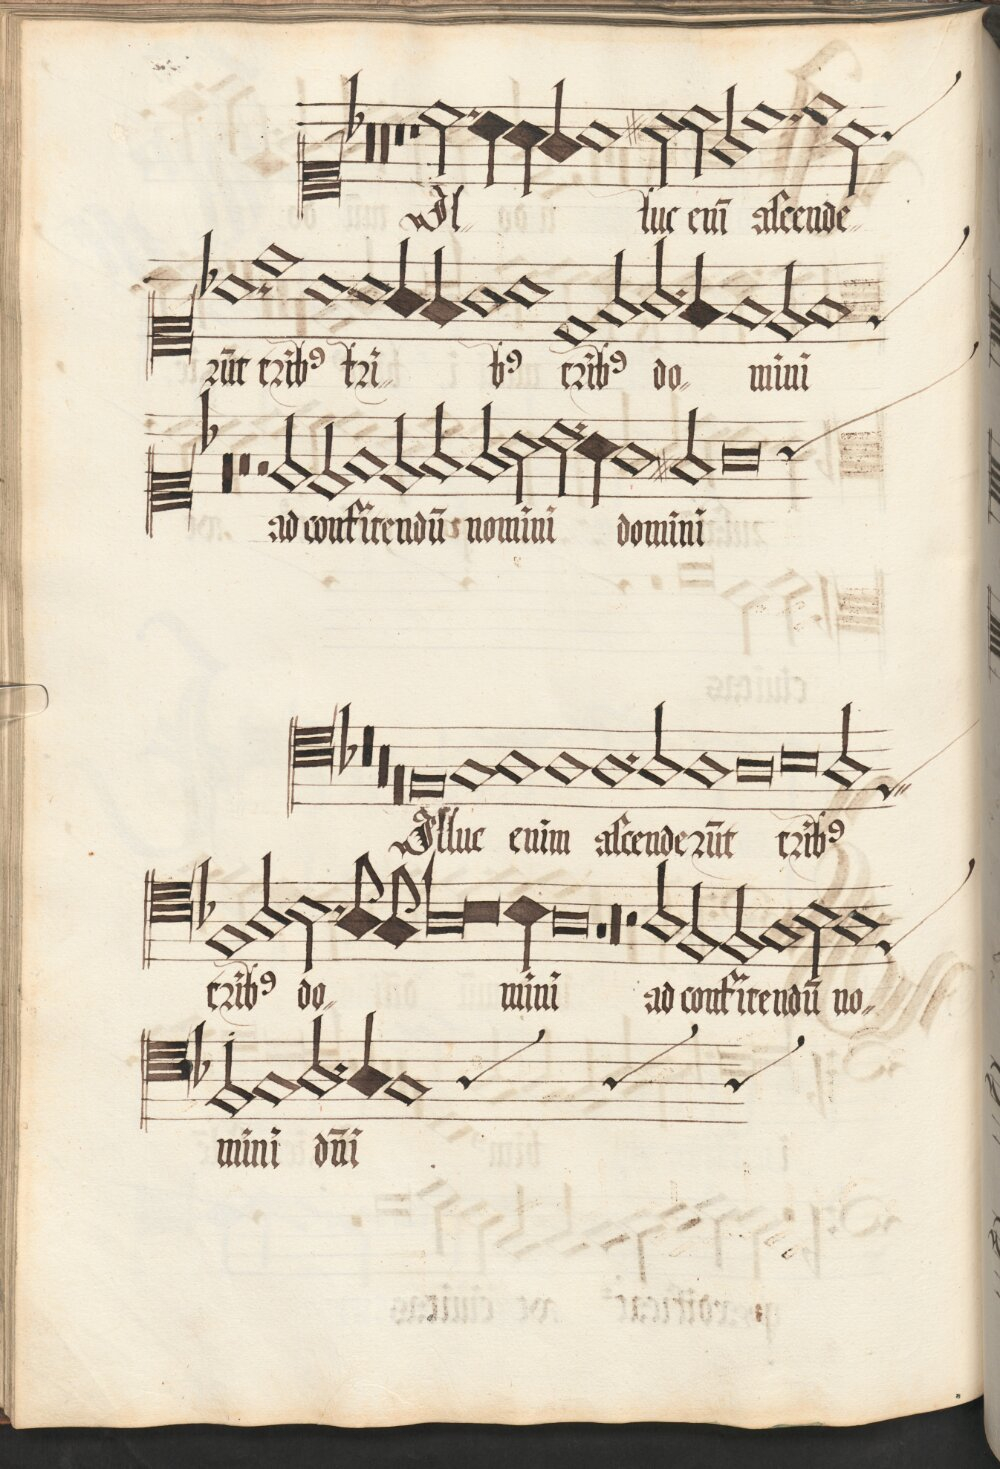 Il luc eni̅ ascende
ru̅t tribꝰ tri i bꝰ tribꝰ do mini
ad confitendu̅ nomini domini
Illuc enim ascenderu̅t tribꝰ
tribꝰ do mini ad confitendu̅ no
mini dn̅i